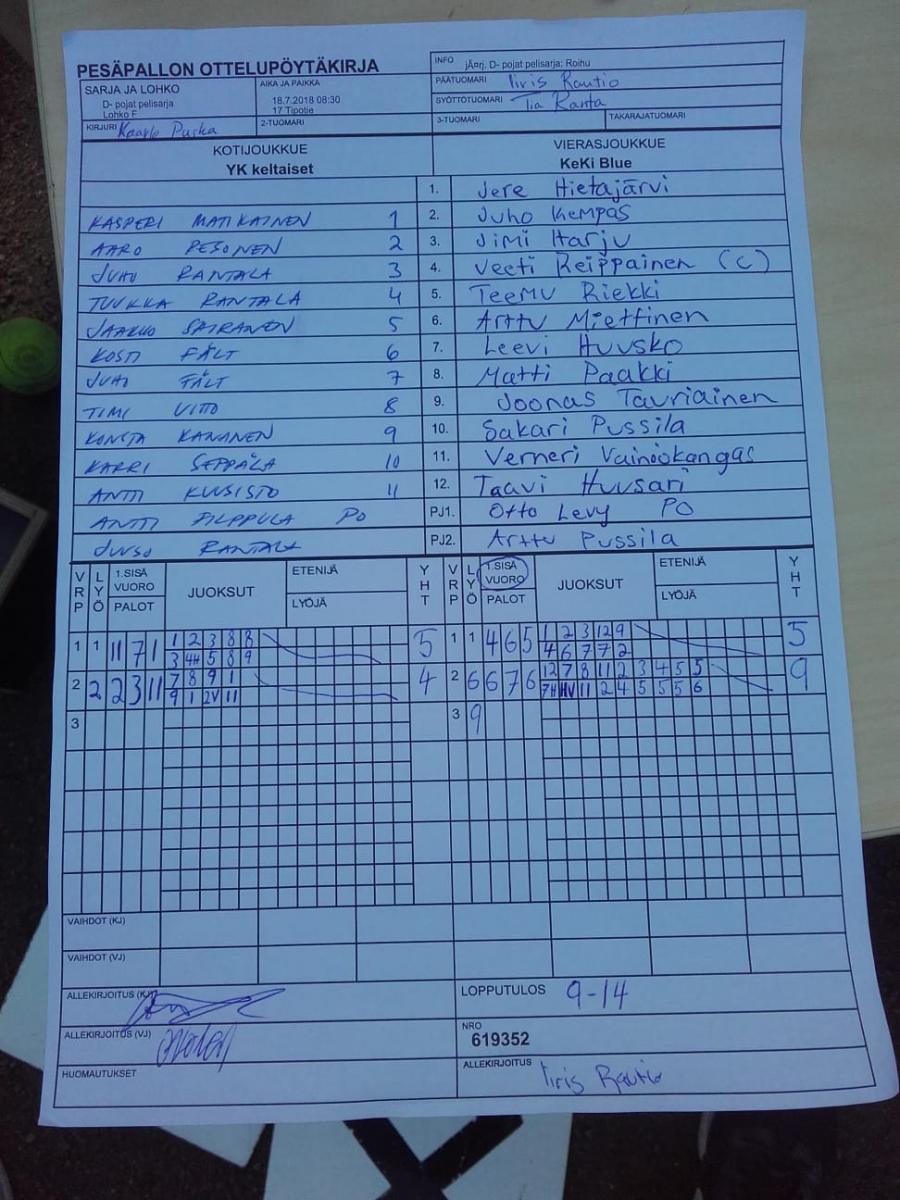 PESÄPALLON OTTELUPÖYTÄKIRJA
INFO jÄrrj. D- pojat pelisarja: Roihu
SARJA JA LOHKO
D- pojat pelisarja
Lohko F
AIKA JA PAIKKA
18.7.2018 08:30
17 Tipotie
PÄÄTUOMARI Iiris Rautio
SYÖTTÖTUOMARI Tia Ranta
KIRJURI Kaarlo Puska
2-TUOMARI
3-TUOMARI
TAKARAJATUOMARI
KOTIJOUKKUE
YK keltaiset
VIERASJOUKKUE
KeKi Blue
1. Jere Hietajärvi
KASPERI MATIKAINEN 1 2. Juho Kempas
AARO PESONEN 2 3. Jimi Harju
JUHO RANTALA 3 4. Veeti Reippainen (C)
TUUKKA RANTALA 4 5. Teemu Riekki
JAAKKO SAIRANEN 5 6. Arttu Miettinen
KOSTI FÄLT 6 7. Leevi Huusko
FÄLT 7 8. Matti Paakki
TIMI 8 9. Joonas Tauriainen
KONSTA KANANEN 9 10. Sakari Pussila
KARRI SEPPÄLÄ 10 11. Verneri Vainiokangas
ANTTI KUUSISTO 11 12. Taavi Huusari
ANTTI FILPPULA PO PJ1. Otto Levy PO
JUUSO RANTALA PJ2. Arttu Pussila
VRP LYÖ 1.SISÄ VUORO PALOT JUOKSUT ETENIJÄ LYÖJÄ YHT VRP LYÖ 1.SISÄ VUORO PALOT JUOKSUT ETENIJÄ LYÖJÄ YHT
1 1 11 7 1 1 2 3 8 8 5 1 1 4 6 5 1 2 3 12 9 5
3 4H 5 8 9 4 6 7 7 2
2 2 2 3 11 7 8 9 1 4 2 6 6 7 6 12 7 8 11 2 3 4 5 5 9
9 1 2V 11 7H HV 11 2 4 5 5 5 6
3 3 9
VAIHDOT (KJ)
VAIHDOT (VJ)
ALLEKIRJOITUS (KJ)
LOPPUTULOS 9-14
ALLEKIRJOITUS (VJ)
NRO
619352
HUOMAUTUKSET
ALLEKIRJOITUS Iiris Rautio